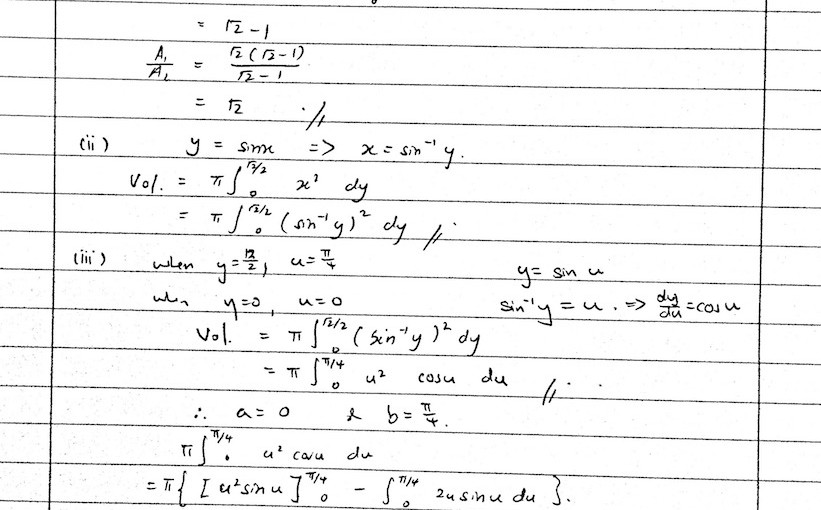 = √2 - 1
A₁/A₂ = √2(√2-1)/√2-1
= √2 .//
(ii) y = sinx => x = sin⁻¹ y.
Vol. = π∫₀^(√2/2) x² dy
= π∫₀^(√2/2) (sin⁻¹y)² dy //.
(iii) when y=√2/2, u=π/4 y= sin u
when y=0, u=0 sin⁻¹y = u. => dy/du = cosu
Vol. = π∫₀^(√2/2) (sin⁻¹y)² dy
= π∫₀^(π/4) u² cosu du //.
∴ a=0 & b=π/4.
π∫₀^(π/4) u² cosu du
= π{ [u²sinu]₀^(π/4) - ∫₀^(π/4) 2u sinu du }.